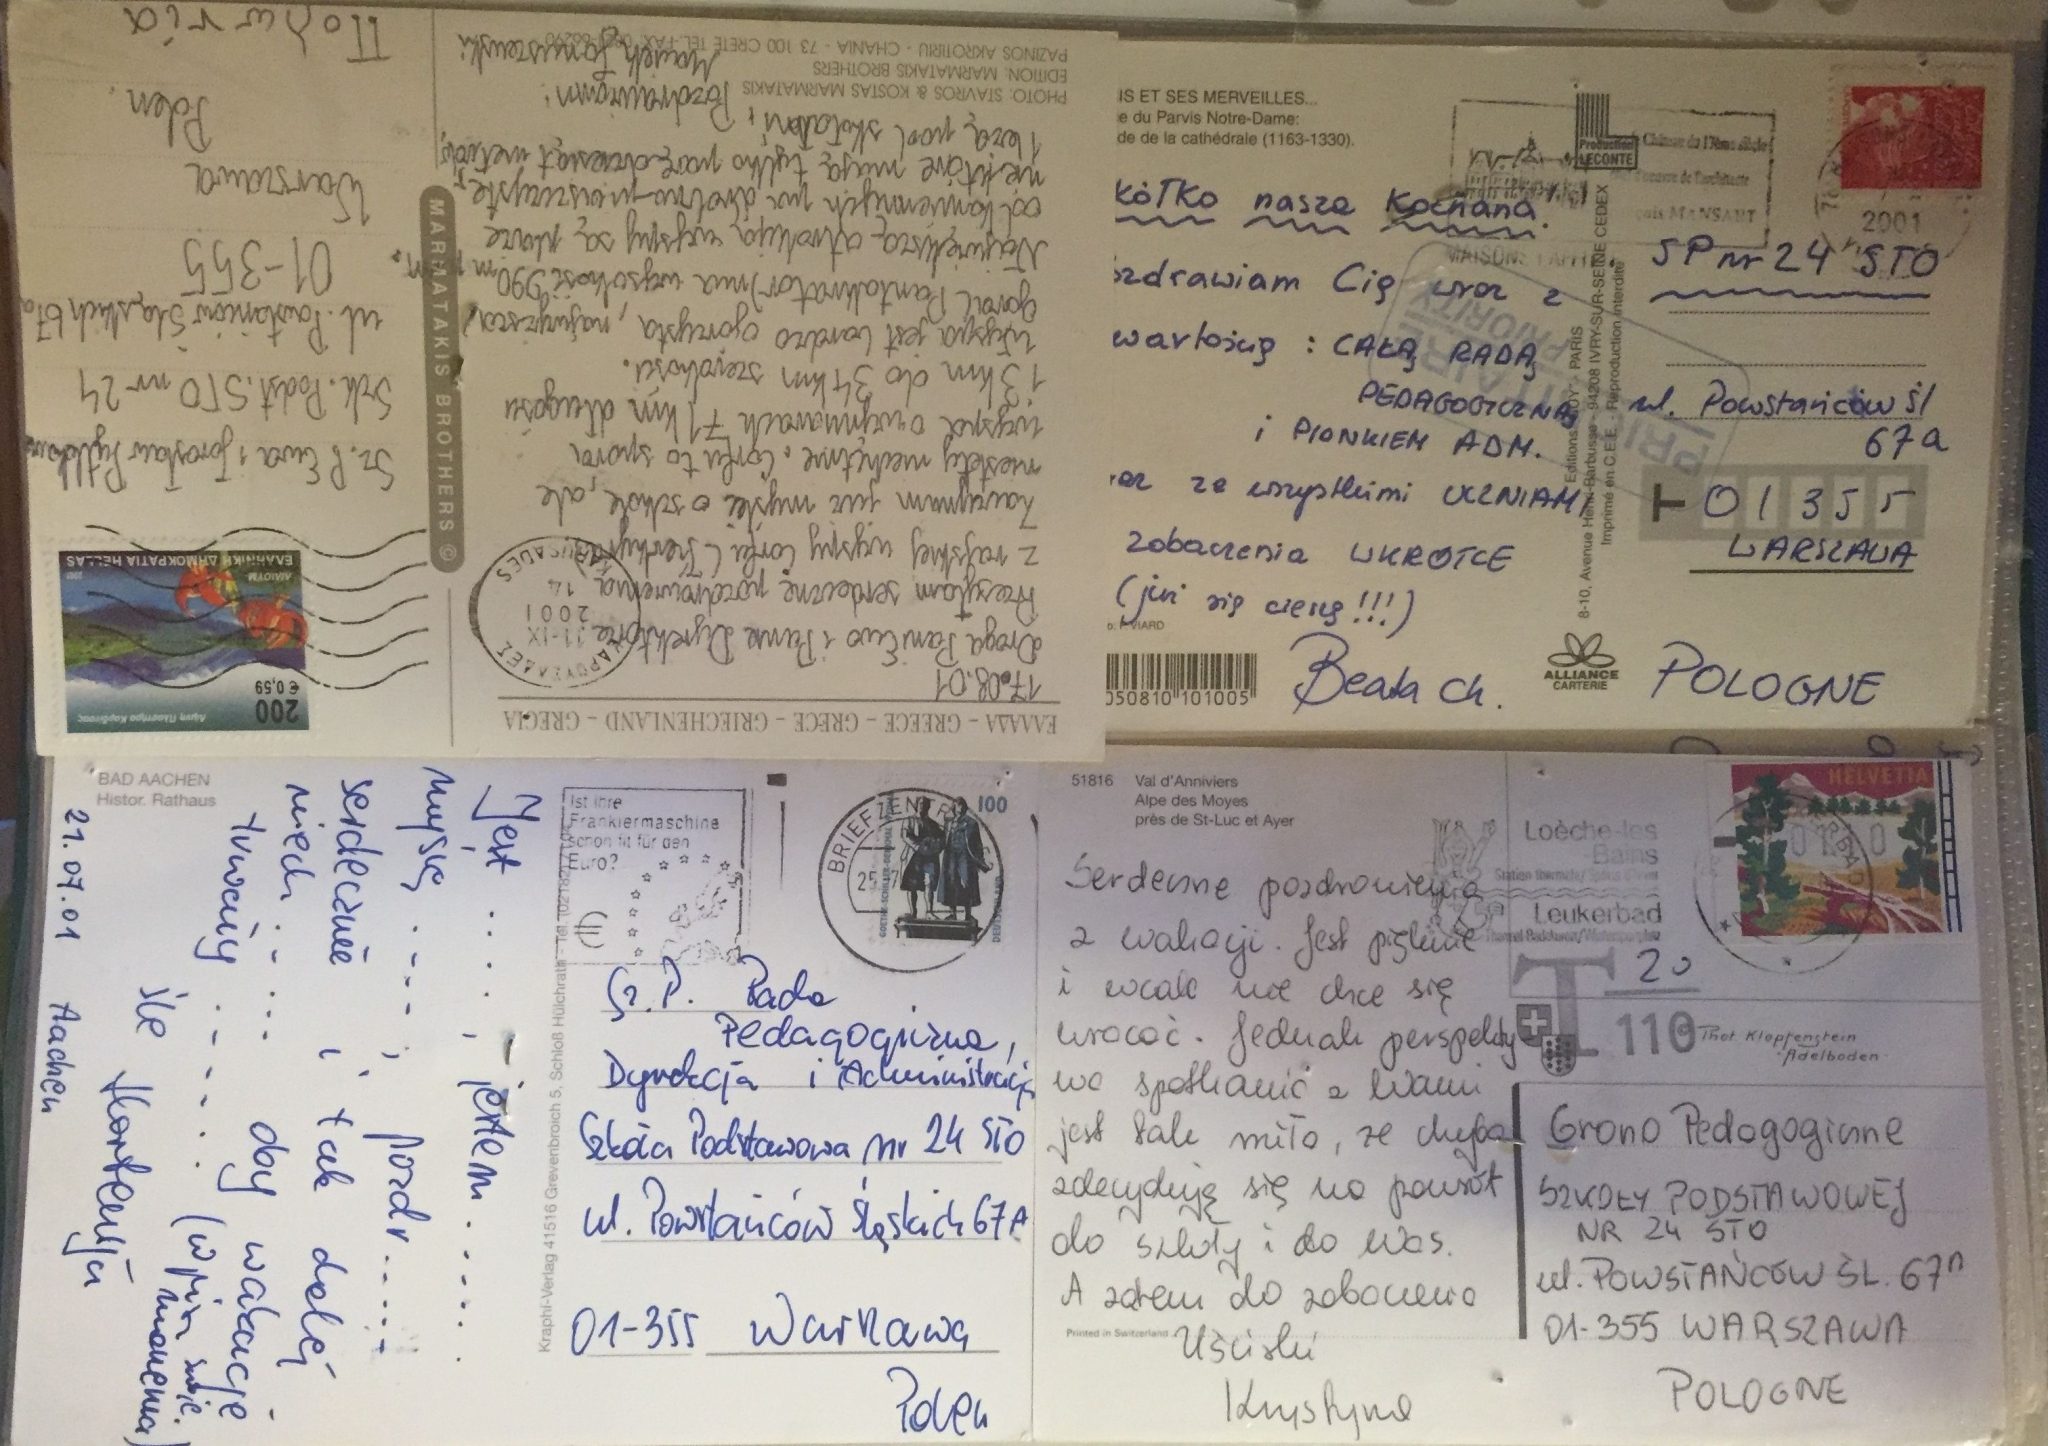 ΕΛΛΑΔΑ – GREECE – GRECE – GRIECHENLAND – GRECIA
17.08.01
Droga Pani Ewo i Panie Dyrektorze
Przesyłam serdeczne pozdrowienia
z rajskiej wyspy Corfu (Kerkyra).
Zaczynam już myśleć o szkole, ale
niestety niechętnie. Corfu to spora
wyspa o wymiarach 71 km długości
13 km do 34 km szerokości.
Wyspa jest bardzo górzysta, najwyższa
góra (Pantokrator) ma wysokość 990 m n.p.m.
Największą atrakcją wyspy są plaże
od kamiennych po drobno piaszczyste
niektóre mają tylko parę dziesiąt metrów,
i leżą pod skałami,
Pozdrawiam!
PHOTO: STAVROS & KOSTAS MARMATAKIS
EDITION: MARMATAKIS BROTHERS
PAZINOS AKROTIRIU - CHANIA - 73 100 CRETE TEL.-FAX:
MARMATAKIS BROTHERS ©
200
€ 0,59
ΕΛΛΗΝΙΚΗ ΔΗΜΟΚΡΑΤΙΑ HELLAS
11-IX
2001
14
KARUSADES
Sz. P. Ewa i Jarosław
Szk. Podst. STO nr 24
ul. Powstańców Śląskich 67a
01-355
Warszawa
Polen
IS ET SES MERVEILLES...
e du Parvis Notre-Dame:
de de la cathédrale (1163-1330).
kółko nasza Kochana!
ozdrawiam Cię wraz z
wartością : CAŁĄ RADĄ
PEDAGOGICZNĄ
i PIONKIEM ADM.
raz ze wszystkimi UCZNIAMI
zobaczenia WKRÓTCE
(już się cieszę!!!)
VIARD
050810 101005
Beata Ch.
Production
LECONTE
Château du 17ème siècle
MANSART
MAISONS LAFFITTE
PRIORITAIRE
PRIORITY
8-10, Avenue Henri-Barbusse - 94208 IVRY-SUR-SEINE CEDEX
Imprimé en C.E.E. Reproduction interdite
ALLIANCE
CARTERIE
2001
SP nr 24 STO
ul. Powstańców Śl
67a
T 01355
WARSZAWA
POLOGNE
BAD AACHEN
Histor. Rathaus
Jest ...., jestem .....
myślę ....,
serdecznie i pozdr.....
niech ..... i tak dalej
tymczasy ..... oby wakacje
śle Hortensja
21.07.01 Aachen
Kraphl-Verlag 41516 Grevenbroich 5, Schloß Hülchrath - Tel.
Ist Ihre
Frankiermaschine
schon fit für den
Euro?
BRIEFZENTRUM
100
Sz.P. Rada
Pedagogiczna,
Dyrekcja i Administracja
Szkoła Podstawowa nr 24 STO
ul. Powstańców Śląskich 67A
01-355 Warszawa
Polen
51816 Val d'Anniviers
Alpe des Moyes
près de St-Luc et Ayer
Serdeczne pozdrowienia
z wakacji. Jest pięknie
i wcale nie chce się
wracać. Jednak perspekty
wa spotkania z Wami
jest tak miła, że chyba
zdecyduję się na powrót
do szkoły i do Was.
A zatem do zobaczenia
Uściski
Krystyna
Printed in Switzerland
Loèche-les
-Bains
Leukerbad
HELVETIA
20
T 110
Thot Klopfenstein
Adelboden
Grono Pedagogiczne
SZKOŁY PODSTAWOWEJ
NR 24 STO
ul. POWSTAŃCÓW ŚL. 67A
01-355 WARSZAWA
POLOGNE